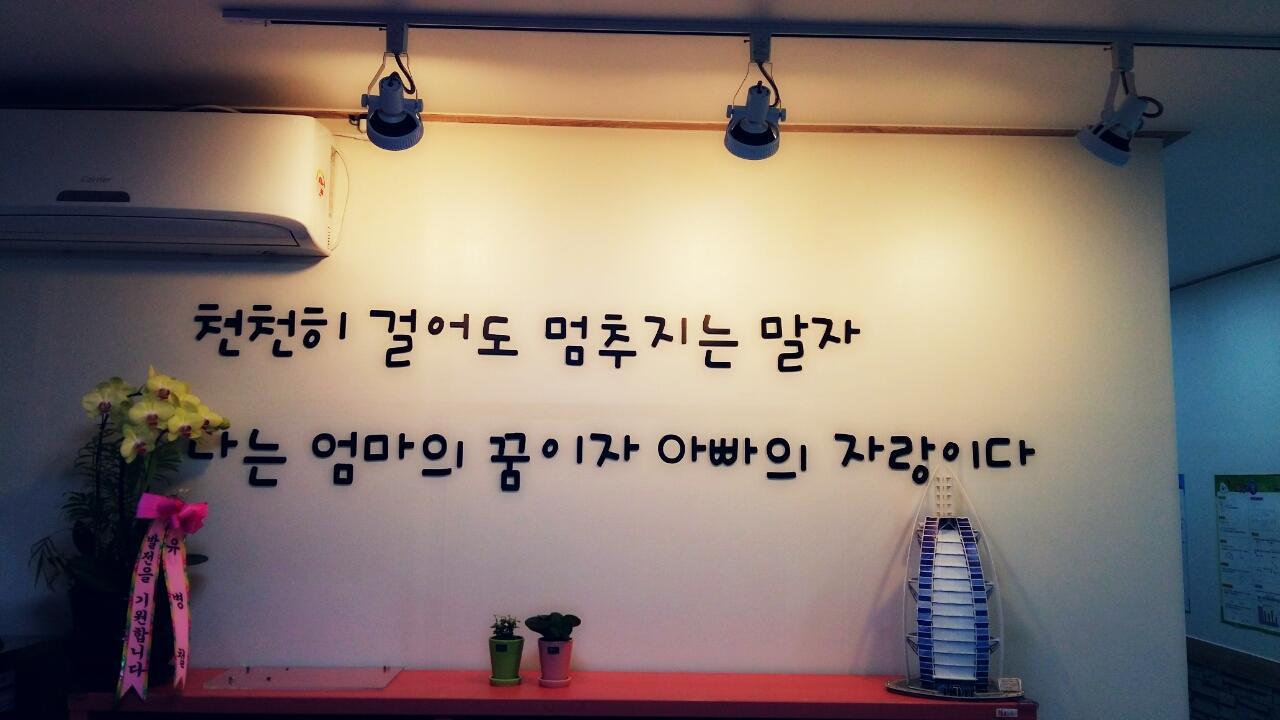 천천히 걸어도 멈추지는 말자
나는 엄마의 꿈이자 아빠의 자랑이다
Carrier
발전을 기원합니다
유병